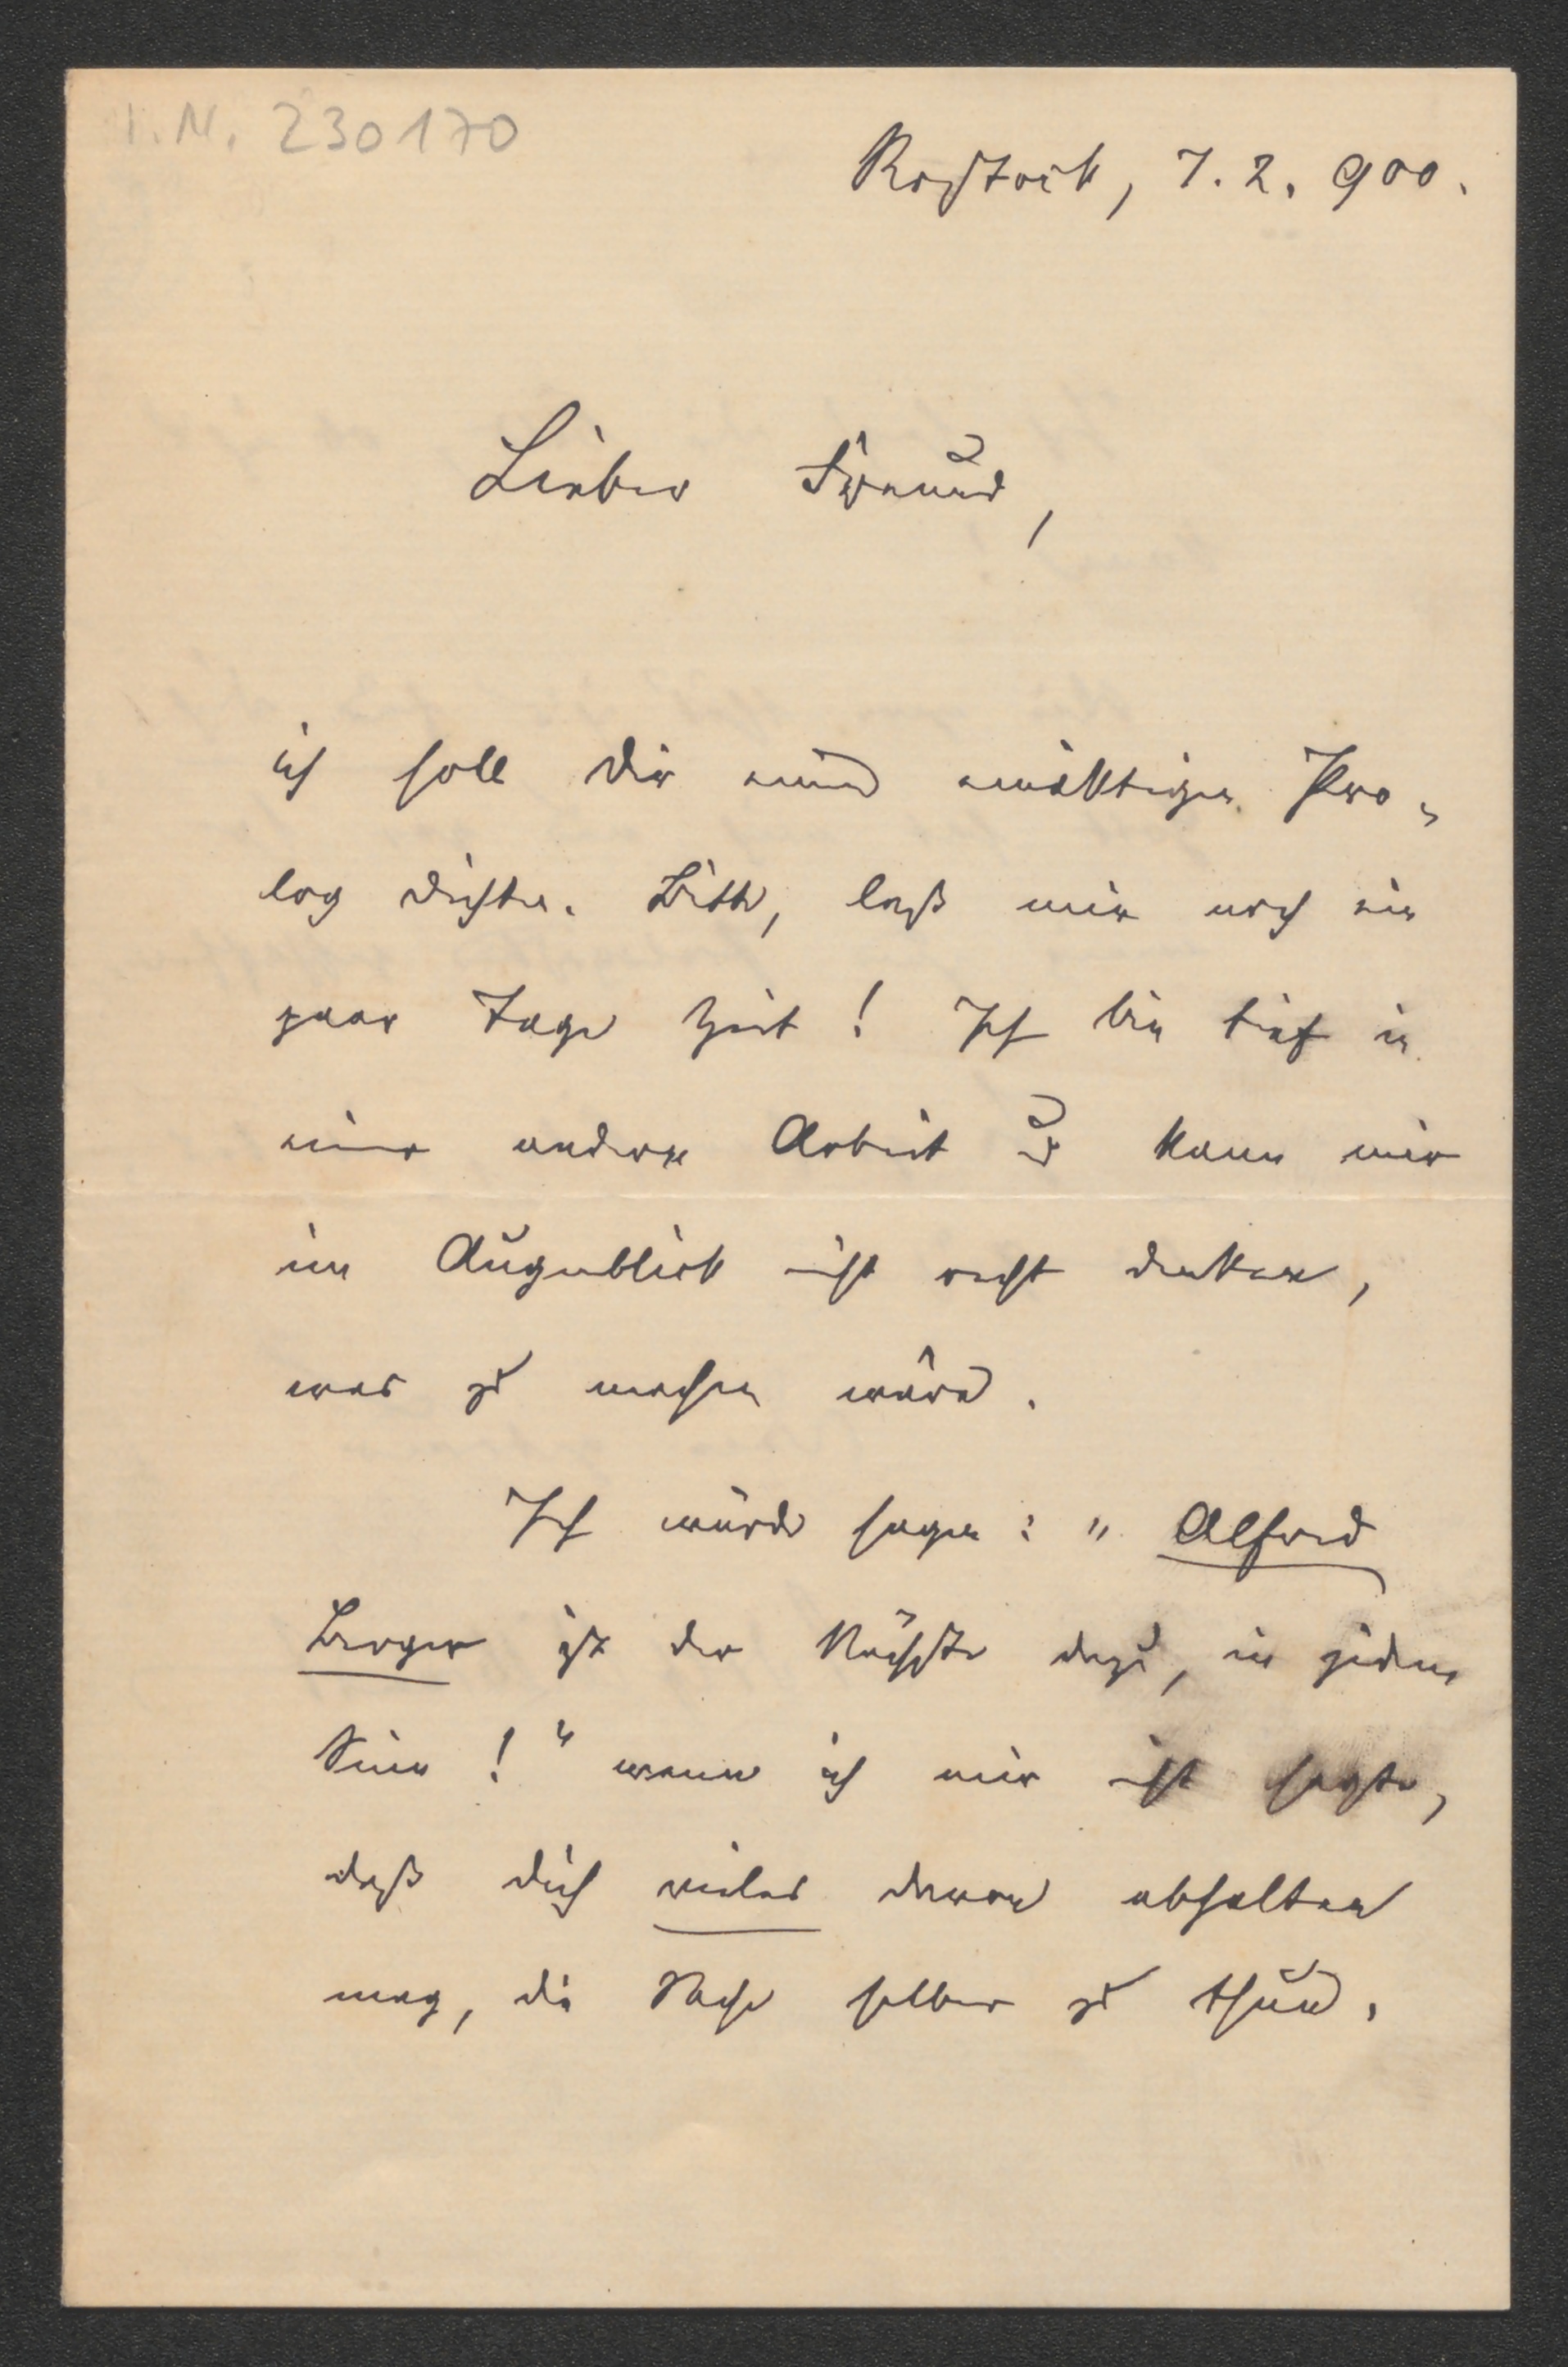 I. N. 230170
Rostock, 7. 2. 900.
Lieber Freund,
ich soll Dir einen einaktigen Pro-
log dichten. Bitte, laß mir noch ein
paar Tage Zeit! Ich bin tief in
einer anderen Arbeit und kann mir
im Augenblick nicht recht denken,
was zu machen wäre.
Ich würde sagen: „Alfred
Berger ist der Nächste dazu, in jedem
Sinn!“ wenn ich mir nicht sagte,
daß dich vieles davon abhalten
mag, die Sache selber zu thun.